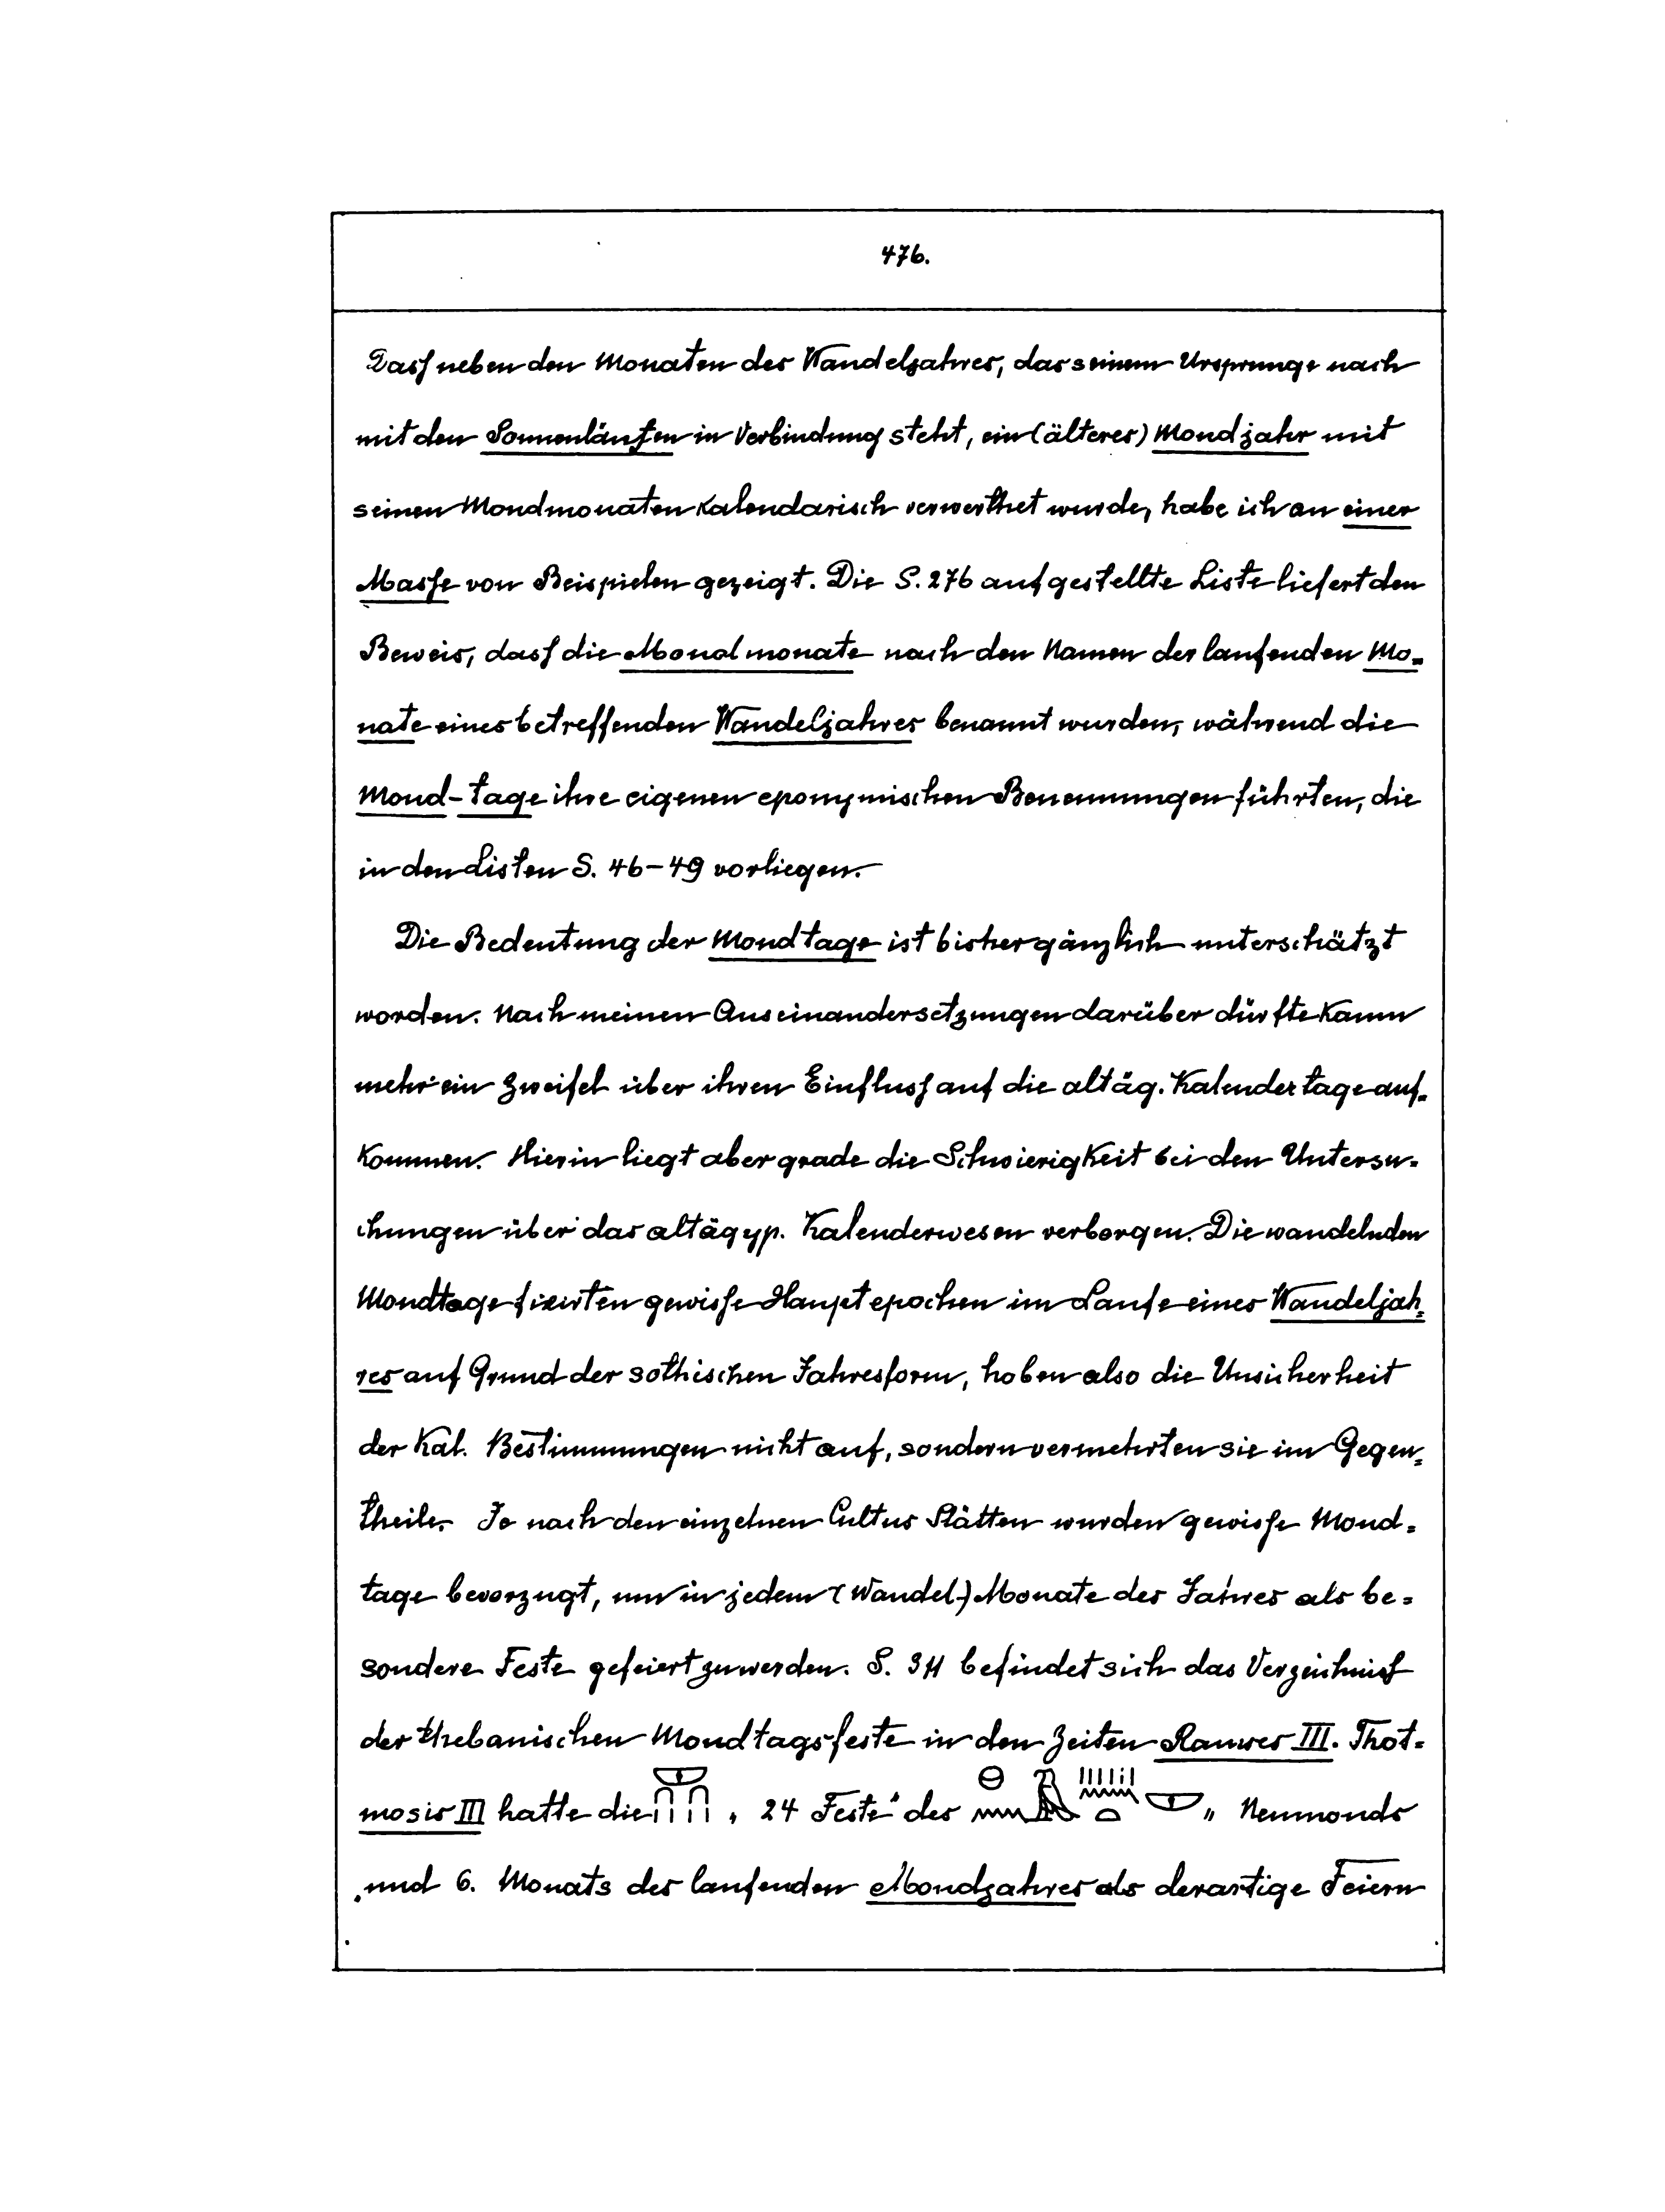 476.
Dass neben den Monaten des Wandeljahres, das seinem Ursprunge nach
mit den Sonnenläufen in Verbindung steht, ein (älteres) Mondjahr mit
seinen Mondmonaten kalendarisch verwerthet wurde, habe ich an einer
Masse von Beispielen gezeigt. Die S. 276 aufgestellte Liste liefert den
Beweis, dass die Monalmonate nach den Namen der laufenden Mo-
nate eines betreffenden Wandeljahres benannt wurden, während die
Mond-tage ihre eigenen eponymischen Benennungen führten, die
in den Listen S. 46-49 vorliegen.
Die Bedeutung der Mondtage ist bisher gänzlich unterschätzt
worden. Nach meinen Auseinandersetzungen darüber dürfte kaum
mehr ein Zweifel über ihren Einfluss auf die altäg. Kalendertage auf-
kommen. Hierin liegt aber grade die Schwierigkeit bei den Untersu-
chungen über das altägyp. Kalenderwesen verborgen. Die wandelnden
Mondtage fixirten gewisse Hauptepochen im Laufe eines Wandeljah=
res auf Grund der sothischen Jahresform, hoben also die Unsicherheit
der Kal. Bestimmungen nicht auf, sondern vermehrten sie im Gegen=
theile. Je nach den einzelnen Cultus Stätten wurden gewisse Mond=
tage bevorzugt, um in jedem (Wandel-) Monate des Jahres als be=
sondere Feste gefeiert zu werden. S. 311 befindet sich das Verzeichniss
der thebanischen Mondtagsfeste in den Zeiten Ramses III. Thot=
mosis III hatte die „ 24 Feste" des „ Neumonds
und 6. Monats des laufenden Mondjahres als derartige Feiern